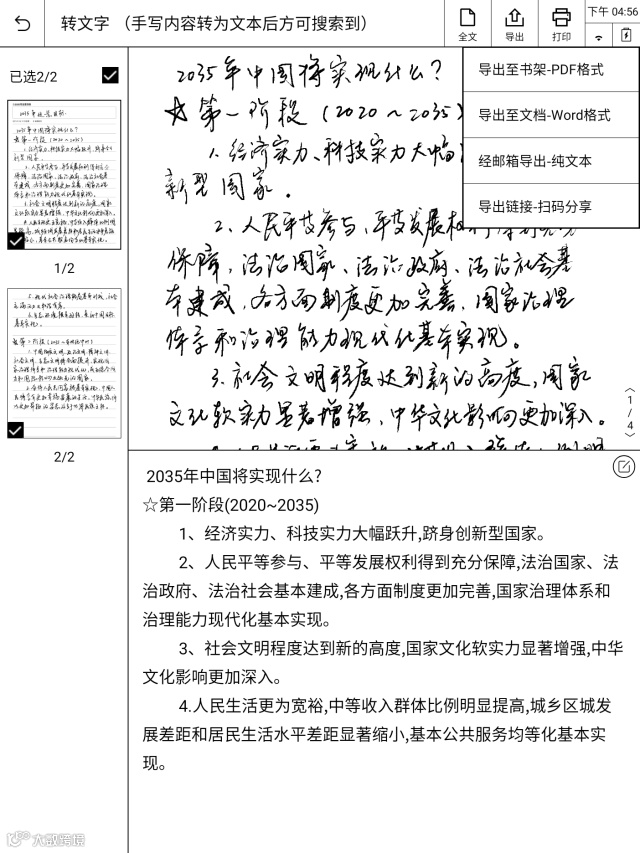 转文字 （手写内容转为文本后方可搜索到）
全文
导出
打印
下午 04:56
已选2/2
1/2
2/2
导出至书架-PDF格式
导出至文档-Word格式
经邮箱导出-纯文本
导出链接-扫码分享
2035年中国将实现什么？
☆第一阶段（2020～2035）
1、经济实力、科技实力大幅
新型国家。
2、人民平等参与、平等发展权
保障，法治国家、法治政府、法治社会基
本建成，各方面制度更加完善，国家治理
体系和治理能力现代化基本实现。
3、社会文明程度达到新的高度，国家
文化软实力显著增强，中华文化影响更加深入。
1/4
2035年中国将实现什么?
☆第一阶段(2020~2035)
1、经济实力、科技实力大幅跃升,跻身创新型国家。
2、人民平等参与、平等发展权利得到充分保障,法治国家、法
治政府、法治社会基本建成,各方面制度更加完善,国家治理体系和
治理能力现代化基本实现。
3、社会文明程度达到新的高度,国家文化软实力显著增强,中华
文化影响更加深入。
4.人民生活更为宽裕,中等收入群体比例明显提高,城乡区城发
展差距和居民生活水平差距显著缩小,基本公共服务均等化基本实
现。
大数跨境